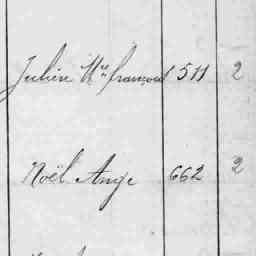 Julien Mie françois 1511 2
Noël Ange 662 2